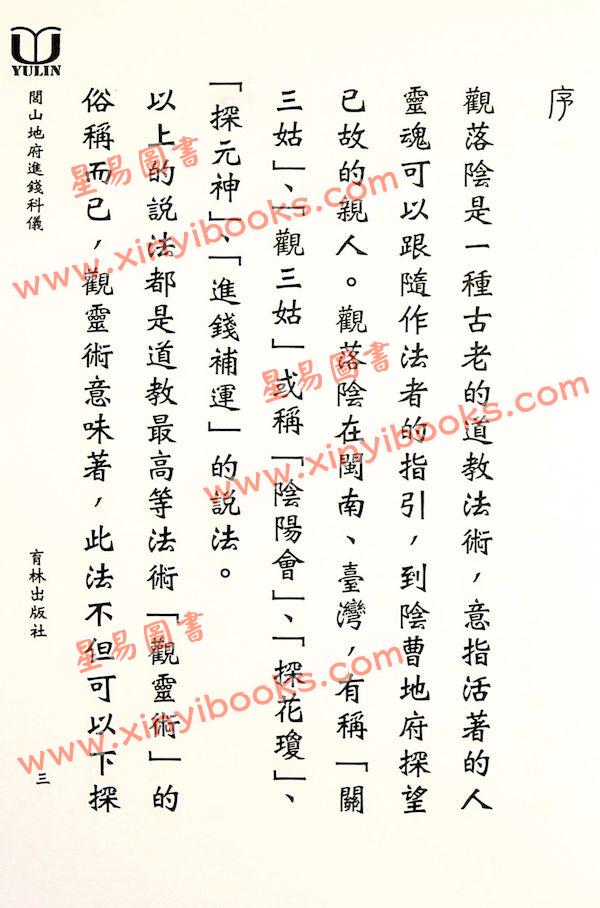 序
觀落陰是一種古老的道教法術，意指活著的人
靈魂可以跟隨作法者的指引，到陰曹地府探望
已故的親人。觀落陰在閩南、臺灣，有稱「關
三姑」、「觀三姑」或稱「陰陽會」、「探花瓊」、
「探元神」、「進錢補運」的說法。
以上的說法都是道教最高等法術「觀靈術」的
俗稱而已，觀靈術意味著，此法不但可以下探
YULIN
閭山地府進錢科儀
育林出版社
三
星易圖書
www.xinyibooks.com
星易圖書
www.xinyibooks.com
星易圖書
www.xinyibooks.com